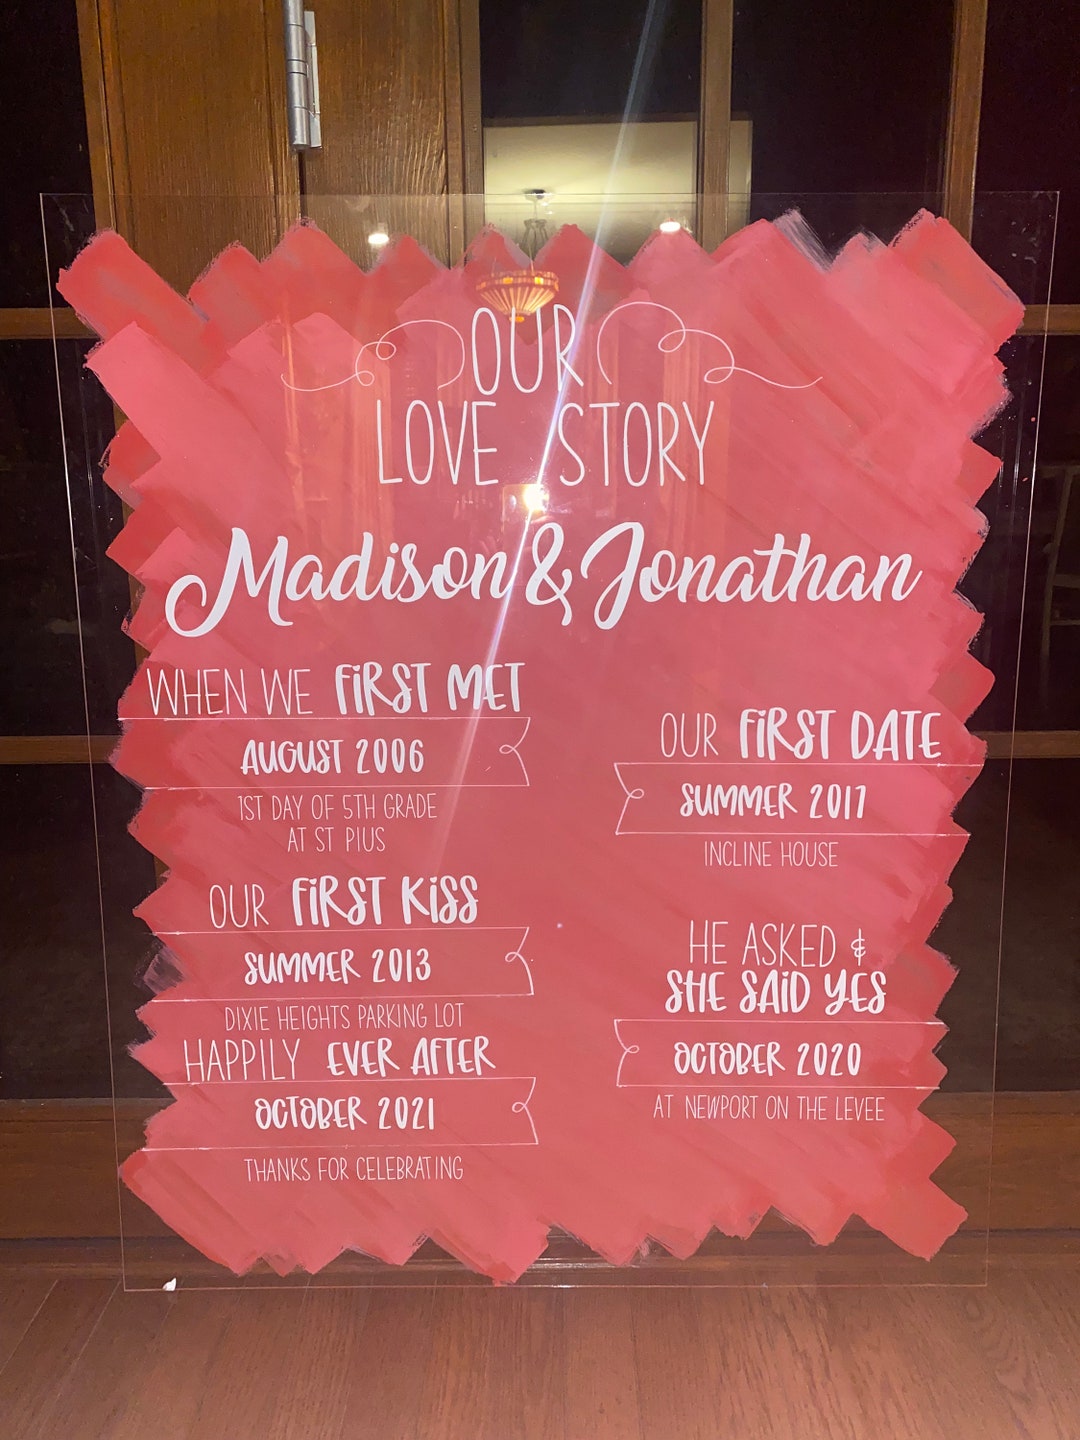 OUR
LOVE STORY
Madison & Jonathan
WHEN WE FIRST MET
AUGUST 2006
1ST DAY OF 5TH GRADE
AT ST PIUS
OUR FIRST KISS
SUMMER 2013
DIXIE HEIGHTS PARKING LOT
HAPPILY EVER AFTER
OCTOBER 2021
THANKS FOR CELEBRATING
OUR FIRST DATE
SUMMER 2017
INCLINE HOUSE
HE ASKED &
SHE SAID YES
OCTOBER 2020
AT NEWPORT ON THE LEVEE